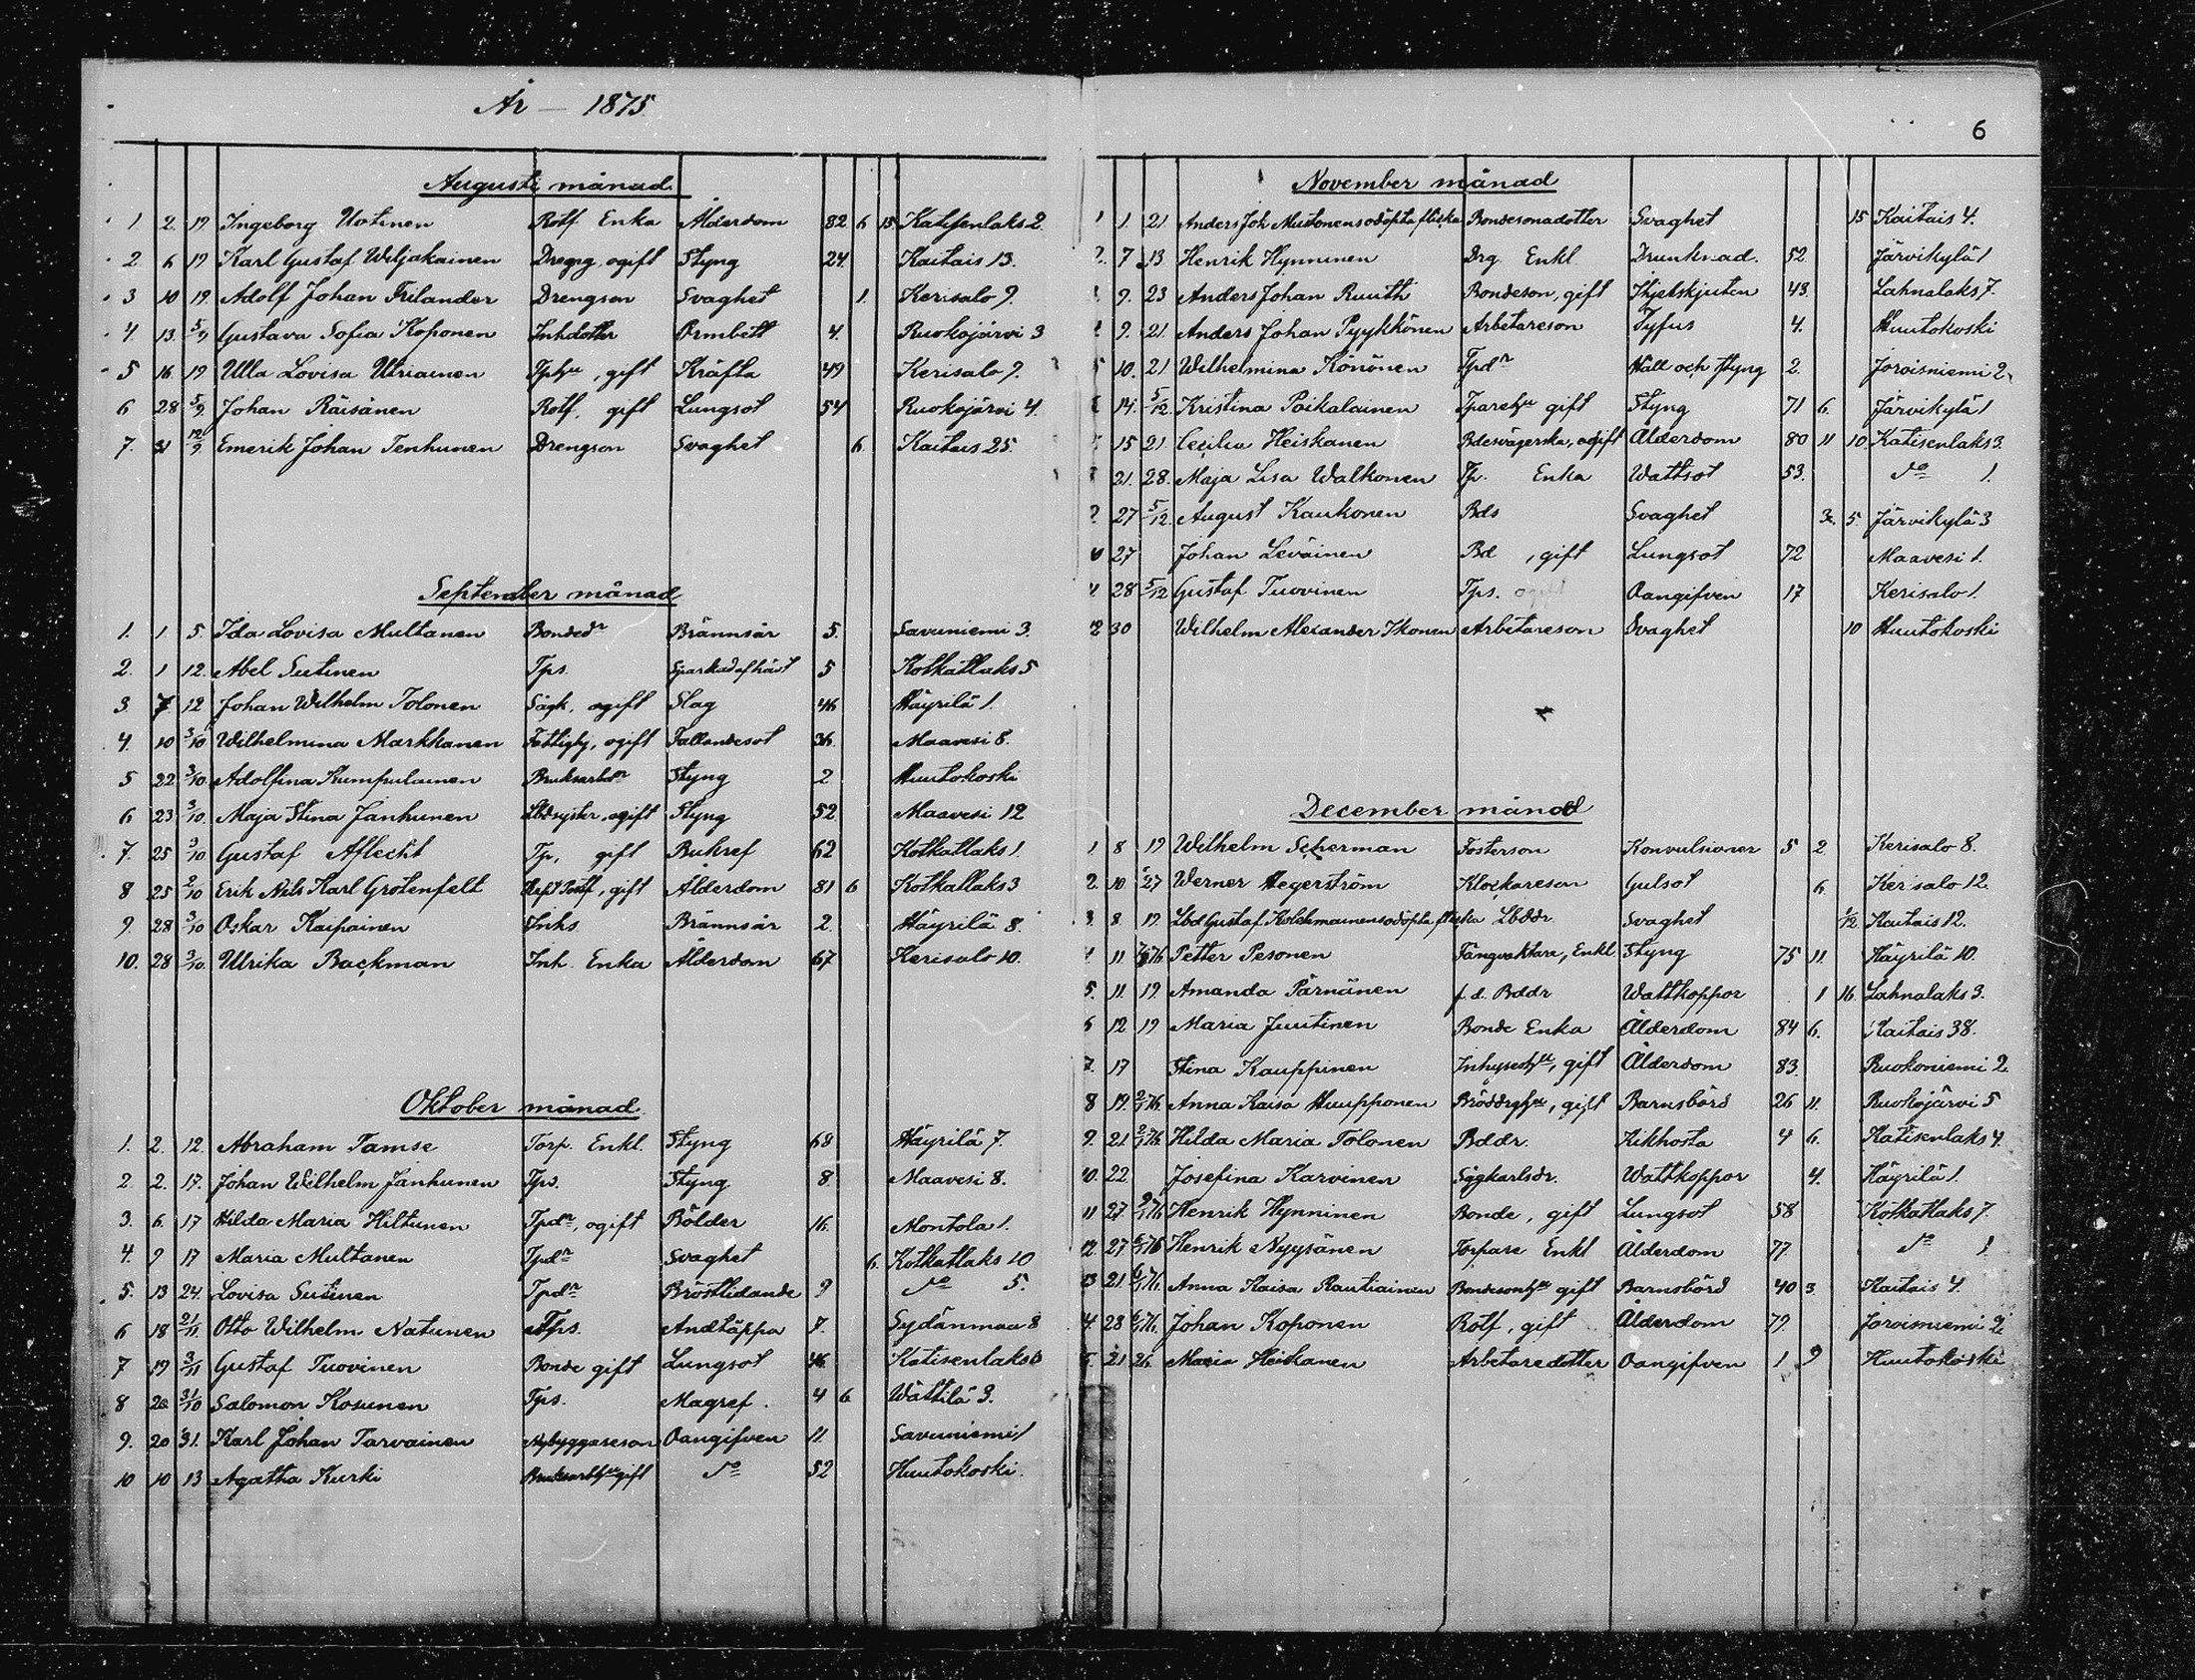 År — 1875
Augusti månad.
1 2. 19 Ingeborg Uotinen Rotf. Enka Ålderdom 82 6 15 Katisenlaks 2.
2 6 19 Karl Gustaf Weljakainen Dreng, ogift Styng 24. Kaitais 13.
3 10 19. Adolf Johan Frilander Drengson Svaghet 1. Kerisalo 9.
4. 13. 5/9 Gustava Sofia Koponen Inhdotter Ormbett 4. Ruokojärvi 3
5 16. 19 Ulla Lovisa Utriainen Tphu, gift Kräfta 49 Kerisalo 9.
6 28 5/9. Johan Räisänen Rotf. gift Lungsot 54 Ruokojärvi 4.
7. 31 12/9. Emerik Johan Tenhunen Drengson Svaghet 6 Kaitais 25.
September månad
1. 1. 5. Ida Lovisa Multanen Bondedr Brännsår 5. Savuniemi 3.
2. 1 12. Abel Sutinen Tps. Sparkad af häst 5 Kotkatlaks 5
3 7 12 Johan Wilhelm Tolonen Sågk. ogift Slag 46 Häyrilä 1.
4. 10 3/10 Wilhelmina Markkanen Fattighj, ogift Fallandesot 36. Maavesi 8.
5 22 3/10. Adolfina Kumpulainen Bruksarbdr Styng 2 Huutokoski
6 23 3/10. Maja Stina Janhunen Lbdsyster, ogift Styng 52. Maavesi 12
7. 25 3/10 Gustaf Aflecht Tp, gift Bukref 62 Kotkatlaks 1.
8 25 2/10 Erik Nils Karl Grotenfelt gift Ålderdom 81 6 Kotkatlaks 3
9. 28 3/10 Oskar Kaipainen Inhs. Brännsår 2. Häyrilä 8.
10. 28 3/10. Ulrika Backman Inh. Enka Ålderdom 67 Kerisalo 10.
Oktober månad.
1. 2. 12. Abraham Tamse Torp. Enkl. Styng 68 Häyrilä 7.
2 2. 17. Johan Wilhelm Janhunen Tps. Styng 8. Maavesi 8.
3. 6. 17 Hilda Maria Hiltunen Tpdr, ogift Bölder 16. Montola 1.
4. 9 17 Maria Multanen Tpdr Svaghet 6. Kotkatlaks 10
5. 13 24. Lovisa Sutinen Tpdr Bröstlidande 9 do 5.
6 18 21/11. Otto Wilhelm Natunen Tps. Andtäppa 7. Sydänmaa 8
7 19 3/11 Gustaf Tuovinen Bonde gift Lungsot 46. Katisenlaks 6
8 20 31/10 Salomon Kosunen Tps. Magref. 4 6. Wättilä 3.
9. 20 31. Karl Johan Tarvainen Nybyggareson Oangifven 11. Savuniemi 1
10 10 13 Agatha Kurki Bruksarbhu gift do 52 Huutokoski.
6
November månad
1 1. 21. Anders Joh Mustonens odöpta flicka Bondesonadotter Svaghet 15 Kaitais 4.
2. 7 13 Henrik Hynninen Drg Enkl Drunknad. 52 Järvikylä 1
9. 23 Anders Johan Ruuth Bondeson, gift Ihjelskjuten 43. Lahnalaks 7.
9. 21. Anders Johan Pyykkönen Arbetareson Tyfus 4. Huutokoski
5 10. 21 Wilhelmina Könönen Tpdr Håll och styng 2. Joroisniemi 2
14. 5/12. Kristina Poikalainen Tparehu gift Styng 71 6. Järvikylä 1
15 21. Cecilia Heiskanen Bdesvägerska, ogift Ålderdom 80 11 10. Katisenlaks 3.
21. 28. Maja Lisa Walkonen Tp. Enka Wattsot 53. do 1.
27 5/12. August Kaukonen Bds Svaghet 3. 5. Järvikylä 3
27 Johan Leväinen Bd, gift Lungsot 72 Maavesi 1.
28 5/12 Gustaf Tuovinen Tps. ogift Oangifven 17 Kerisalo 1.
12 30 Wilhelm Alexander Ikonen Arbetareson Svaghet 10 Huutokoski
December månad
1 8 19 Wilhelm Scherman Fosterson Konvulsioner 5 2 Kerisalo 8.
2. 10. 27 Werner Hegerström Klockareson Gulsot 6. Kerisalo 12.
3 8. 19. Lbd Gustaf Kolehmainens odöpta flicka Lbddr Svaghet 1/2. Kaitais 12.
11 76 Petter Pesonen Fångvaktare, Enkl Styng 75 11. Häyrilä 10.
5. 11. 19. Amanda Pärnänen f.d. Bddr Wattkoppor 1 16. Lahnalaks 3.
6 12 19 Maria Juutinen Bonde Enka Ålderdom 84 6. Kaitais 38.
7. 17 Stina Kauppinen Inhysehu, gift Ålderdom 83. Ruokoniemi 2.
8 19. 2/1 76. Anna Kaisa Huupponen gift Barnsbörd 26 11. Ruokojärvi 5
9. 21 2/1 76. Hilda Maria Tolonen Bddr. Kikhosta 4 6. Katisenlaks 4.
10. 22 Josefina Karvinen Sågkarlsdr. Wattkoppor 4. Häyrilä 1.
11 27 9/1 76 Henrik Hynninen Bonde, gift Lungsot 58 Kotkatlaks 7.
12. 27 6/1 76 Henrik Nyyssänen Torpare Enkl Ålderdom 77. do 1.
13 21 6/1 76. Anna Kaisa Rautiainen Bondesonhu gift Barnsbörd 40 3 Kaitais 4.
4. 28 6/1 76. Johan Koponen Rotf, gift Ålderdom 79. Joroisniemi 2
21 26. Maria Heiskanen Arbetaredotter Oangifven 1 9 Huutokoski